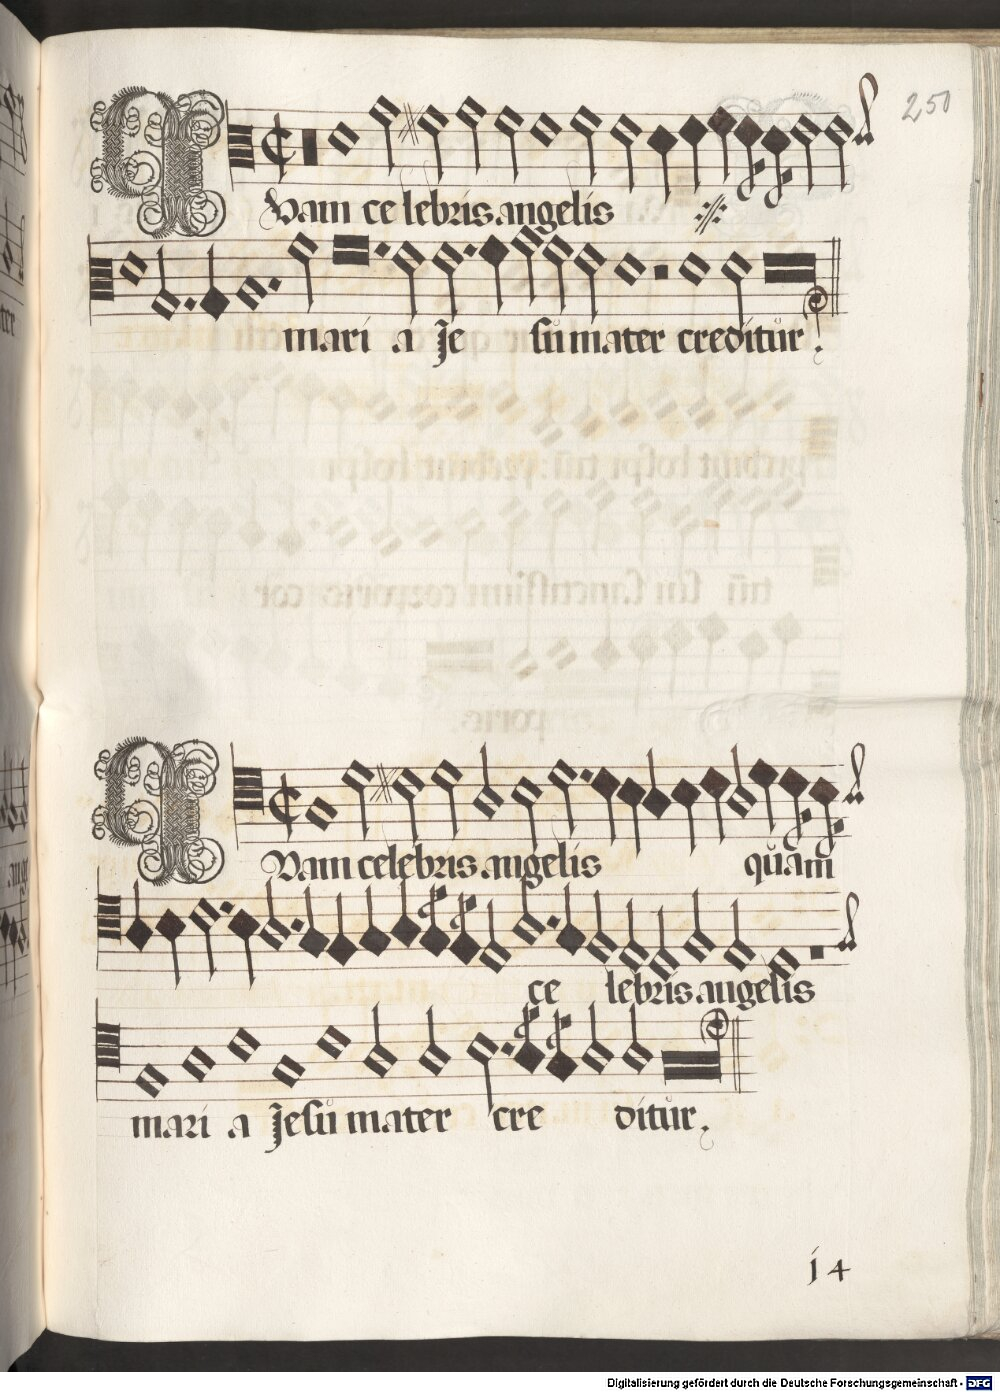 250
Quam ce lebris angelis
mari a Je sů mater creditůr.
Quam celebris angelis qůam
ce lebris angelis
mari a Jesů mater cre ditůr.
14
Digitalisierung gefördert durch die Deutsche Forschungsgemeinschaft - DFG